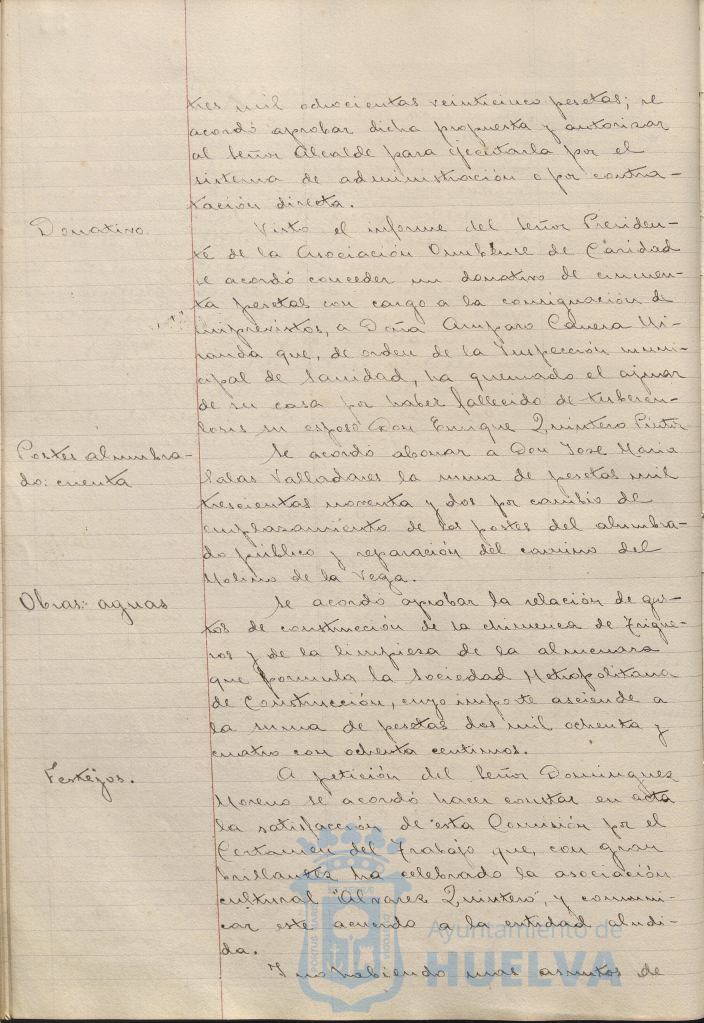 tres mil ochocientas veinticinco pesetas; se
acordó aprobar dicha propuesta y autorizar
al Señor Alcalde para ejecutarla por el
sistema de administración o por contra-
tación directa.
Donativo.
Visto el informe del Señor Presiden-
te de la Asociación Onubense de Caridad
se acordó conceder un donativo de cincuen-
ta pesetas con cargo a la consignación de
imprevistos, a Doña Amparo Mi-
randa que, de orden de la Inspección muni-
cipal de Sanidad, ha quemado el ajuar
de su casa por haber fallecido de tubercu-
losis su esposo Don Enrique Quintero
Postes alumbra-
do: cuenta
Se acordó abonar a Don José María
Salas Valladares la suma de pesetas mil
trescientas noventa y dos por cambio de
emplazamiento de los postes del alumbra-
do público y reparación del camino del
Molino de la Vega.
Obras: aguas
Se acordó aprobar la relación de gas-
tos de construcción de la chimenea de Trigue-
ros y de la limpieza de la almenara
que formula la Sociedad Metropolitana
de Construcción, cuyo importe asciende a
la suma de pesetas dos mil ochenta y
cuatro con ochenta centimos.
Festejos.
A petición del Señor Dominguez
Moreno se acordó hacer constar en acta
la satisfacción de esta Comisión por el
Certamen del Trabajo que, con gran
brillantez ha celebrado la asociación
cultural "Alvarez Quintero", y comuni-
car este acuerdo a la entidad aludi-
da.
Y no habiendo mas asuntos de
Ayuntamiento de
HUELVA